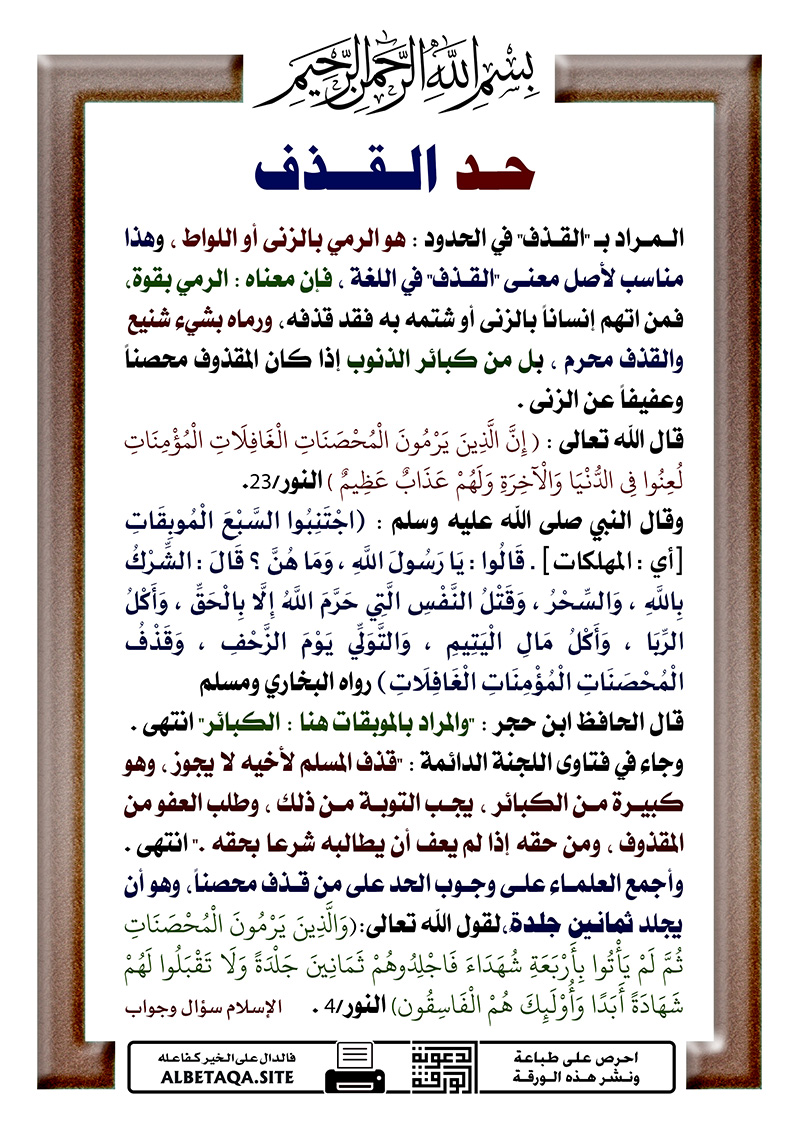 بِسْمِ اللَّهِ الرَّحْمَنِ الرَّحِيمِ
حد القذف
المراد بـ "القذف" في الحدود : هو الرمي بالزنى أو اللواط ، وهذا
مناسب لأصل معنى "القذف" في اللغة ، فإن معناه : الرمي بقوة،
فمن اتهم إنساناً بالزنى أو شتمه به فقد قذفه، ورماه بشيء شنيع
والقذف محرم ، بل من كبائر الذنوب إذا كان المقذوف محصناً
وعفيفاً عن الزنى .
قال الله تعالى : ( إِنَّ الَّذِينَ يَرْمُونَ الْمُحْصَنَاتِ الْغَافِلَاتِ الْمُؤْمِنَاتِ
لُعِنُوا فِي الدُّنْيَا وَالْآخِرَةِ وَلَهُمْ عَذَابٌ عَظِيمٌ ) النور/23.
وقال النبي صلى الله عليه وسلم : (اجْتَنِبُوا السَّبْعَ الْمُوبِقَاتِ
[أي : المهلكات] . قَالُوا : يَا رَسُولَ اللَّهِ ، وَمَا هُنَّ ؟ قَالَ : الشِّرْكُ
بِاللَّهِ ، وَالسِّحْرُ ، وَقَتْلُ النَّفْسِ الَّتِي حَرَّمَ اللَّهُ إِلَّا بِالْحَقِّ ، وَأَكْلُ
الرِّبَا ، وَأَكْلُ مَالِ الْيَتِيمِ ، وَالتَّوَلِّي يَوْمَ الزَّحْفِ ، وَقَذْفُ
الْمُحْصَنَاتِ الْمُؤْمِنَاتِ الْغَافِلَاتِ) رواه البخاري ومسلم
قال الحافظ ابن حجر : "والمراد بالموبقات هنا : الكبائر" انتهى .
وجاء في فتاوى اللجنة الدائمة : "قذف المسلم لأخيه لا يجوز، وهو
كبيرة من الكبائر ، يجب التوبة من ذلك ، وطلب العفو من
المقذوف ، ومن حقه إذا لم يعف أن يطالبه شرعا بحقه ." انتهى .
وأجمع العلماء على وجوب الحد على من قذف محصناً، وهو أن
يجلد ثمانين جلدة،لقول الله تعالى:(وَالَّذِينَ يَرْمُونَ الْمُحْصَنَاتِ
ثُمَّ لَمْ يَأْتُوا بِأَرْبَعَةِ شُهَدَاءَ فَاجْلِدُوهُمْ ثَمَانِينَ جَلْدَةً وَلَا تَقْبَلُوا لَهُمْ
شَهَادَةً أَبَدًا وَأُوْلَئِكَ هُمْ الْفَاسِقُون) النور/4 . الإسلام سؤال وجواب
احرص على طباعة
ونشر هذه الورقة
الدعوية الورقة
فالدال على الخير كفاعله
ALBETAQA.SITE